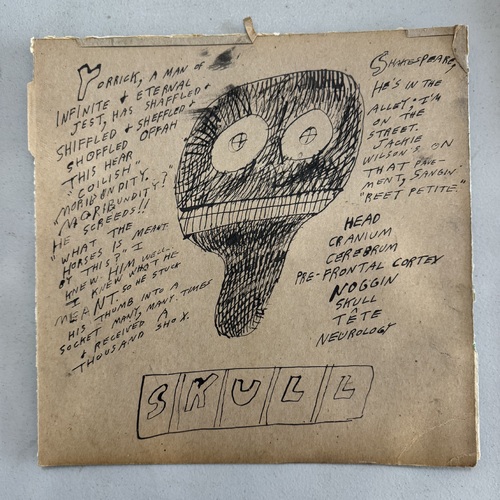 YORRICK, A MAN OF
INFINITE + ETERNAL
JEST, HAS SHAFFLED +
SHIFFLED + SHEFFLED +
SHOFFLED OFFAH
THIS HEAR
COILISH
MORIBUNDITY.
"MORIBUNDITY?"
HE SCREEDS!!
"WHAT THE
HORSES IS MEANT
BY THIS?" I
KNEW HIM WELL.
I KNEW WHAT HE
MEANT. SO HE STUCK
HIS THUMB INTO A
SOCKET MANY, MANY TIMES
+ RECEIVED A
THOUSAND SHOX.
SHAKESPEARE,
HE'S IN THE
ALLEY; I'M
ON THE
STREET.
JACKIE
WILSON'S ON
THAT PAVE-
MENT, SANGIN'
"REET PETITE."
HEAD
CRANIUM
CEREBRUM
PRE-FRONTAL CORTEX
NOGGIN
SKULL
TÊTE
NEUROLOGY
SKULL